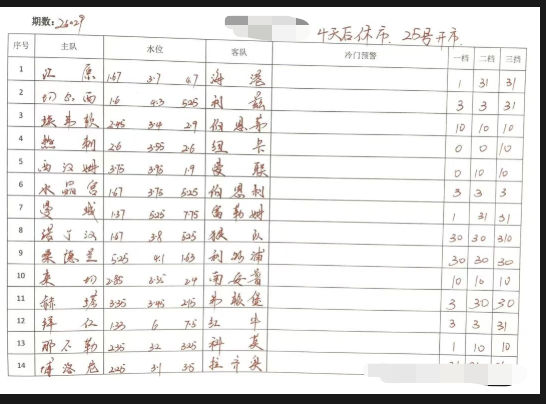 期数: 26029
4天后休市. 25号开市.
序号 主队 水位 客队 冷门预警 一档 二档 三档
1 江原 1.67 3.7 4.7 海港 1 31 31
2 切尔西 1.6 4.3 5.25 利兹 3 3 31
3 埃弗顿 2.45 3.4 2.9 伯恩茅 10 10 10
4 热刺 2.6 3.55 2.6 纽卡 0 0 10
5 西汉姆 3.75 3.95 1.9 曼联 0 10 10
6 水晶宫 1.67 3.75 5.25 伯恩利 3 3 3
7 曼城 1.37 5.25 7.75 富勒姆 1 31 31
8 诺丁汉 1.67 3.8 5.25 狼队 30 30 310
9 桑德兰 5.25 4.1 1.63 利物浦 30 30 30
10 莱切 2.85 2.4 南安普 10 10 10
11 赫塔 3.35 3.45 2.15 弗赖堡 3 30 30
12 拜仁 1.33 6 7.5 红牛 3 3 31
13 那不勒 2.35 3.2 3.25 科莫 1 10 10
14 博洛尼 2.25 3.1 3.5 拉齐奥